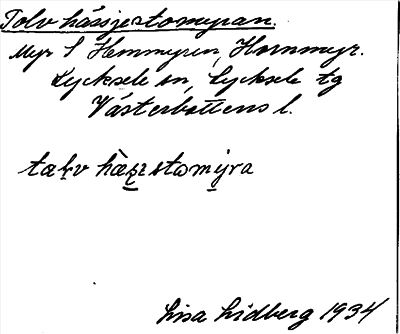 Tolv hässjestomyran.
Myr S Hemmyren, Hornmyr.
Lycksele sn, Lycksele tg
Västerbottens l.
taḷv hæ̀ʂɛstωmýra
Lisa Lidberg 1934